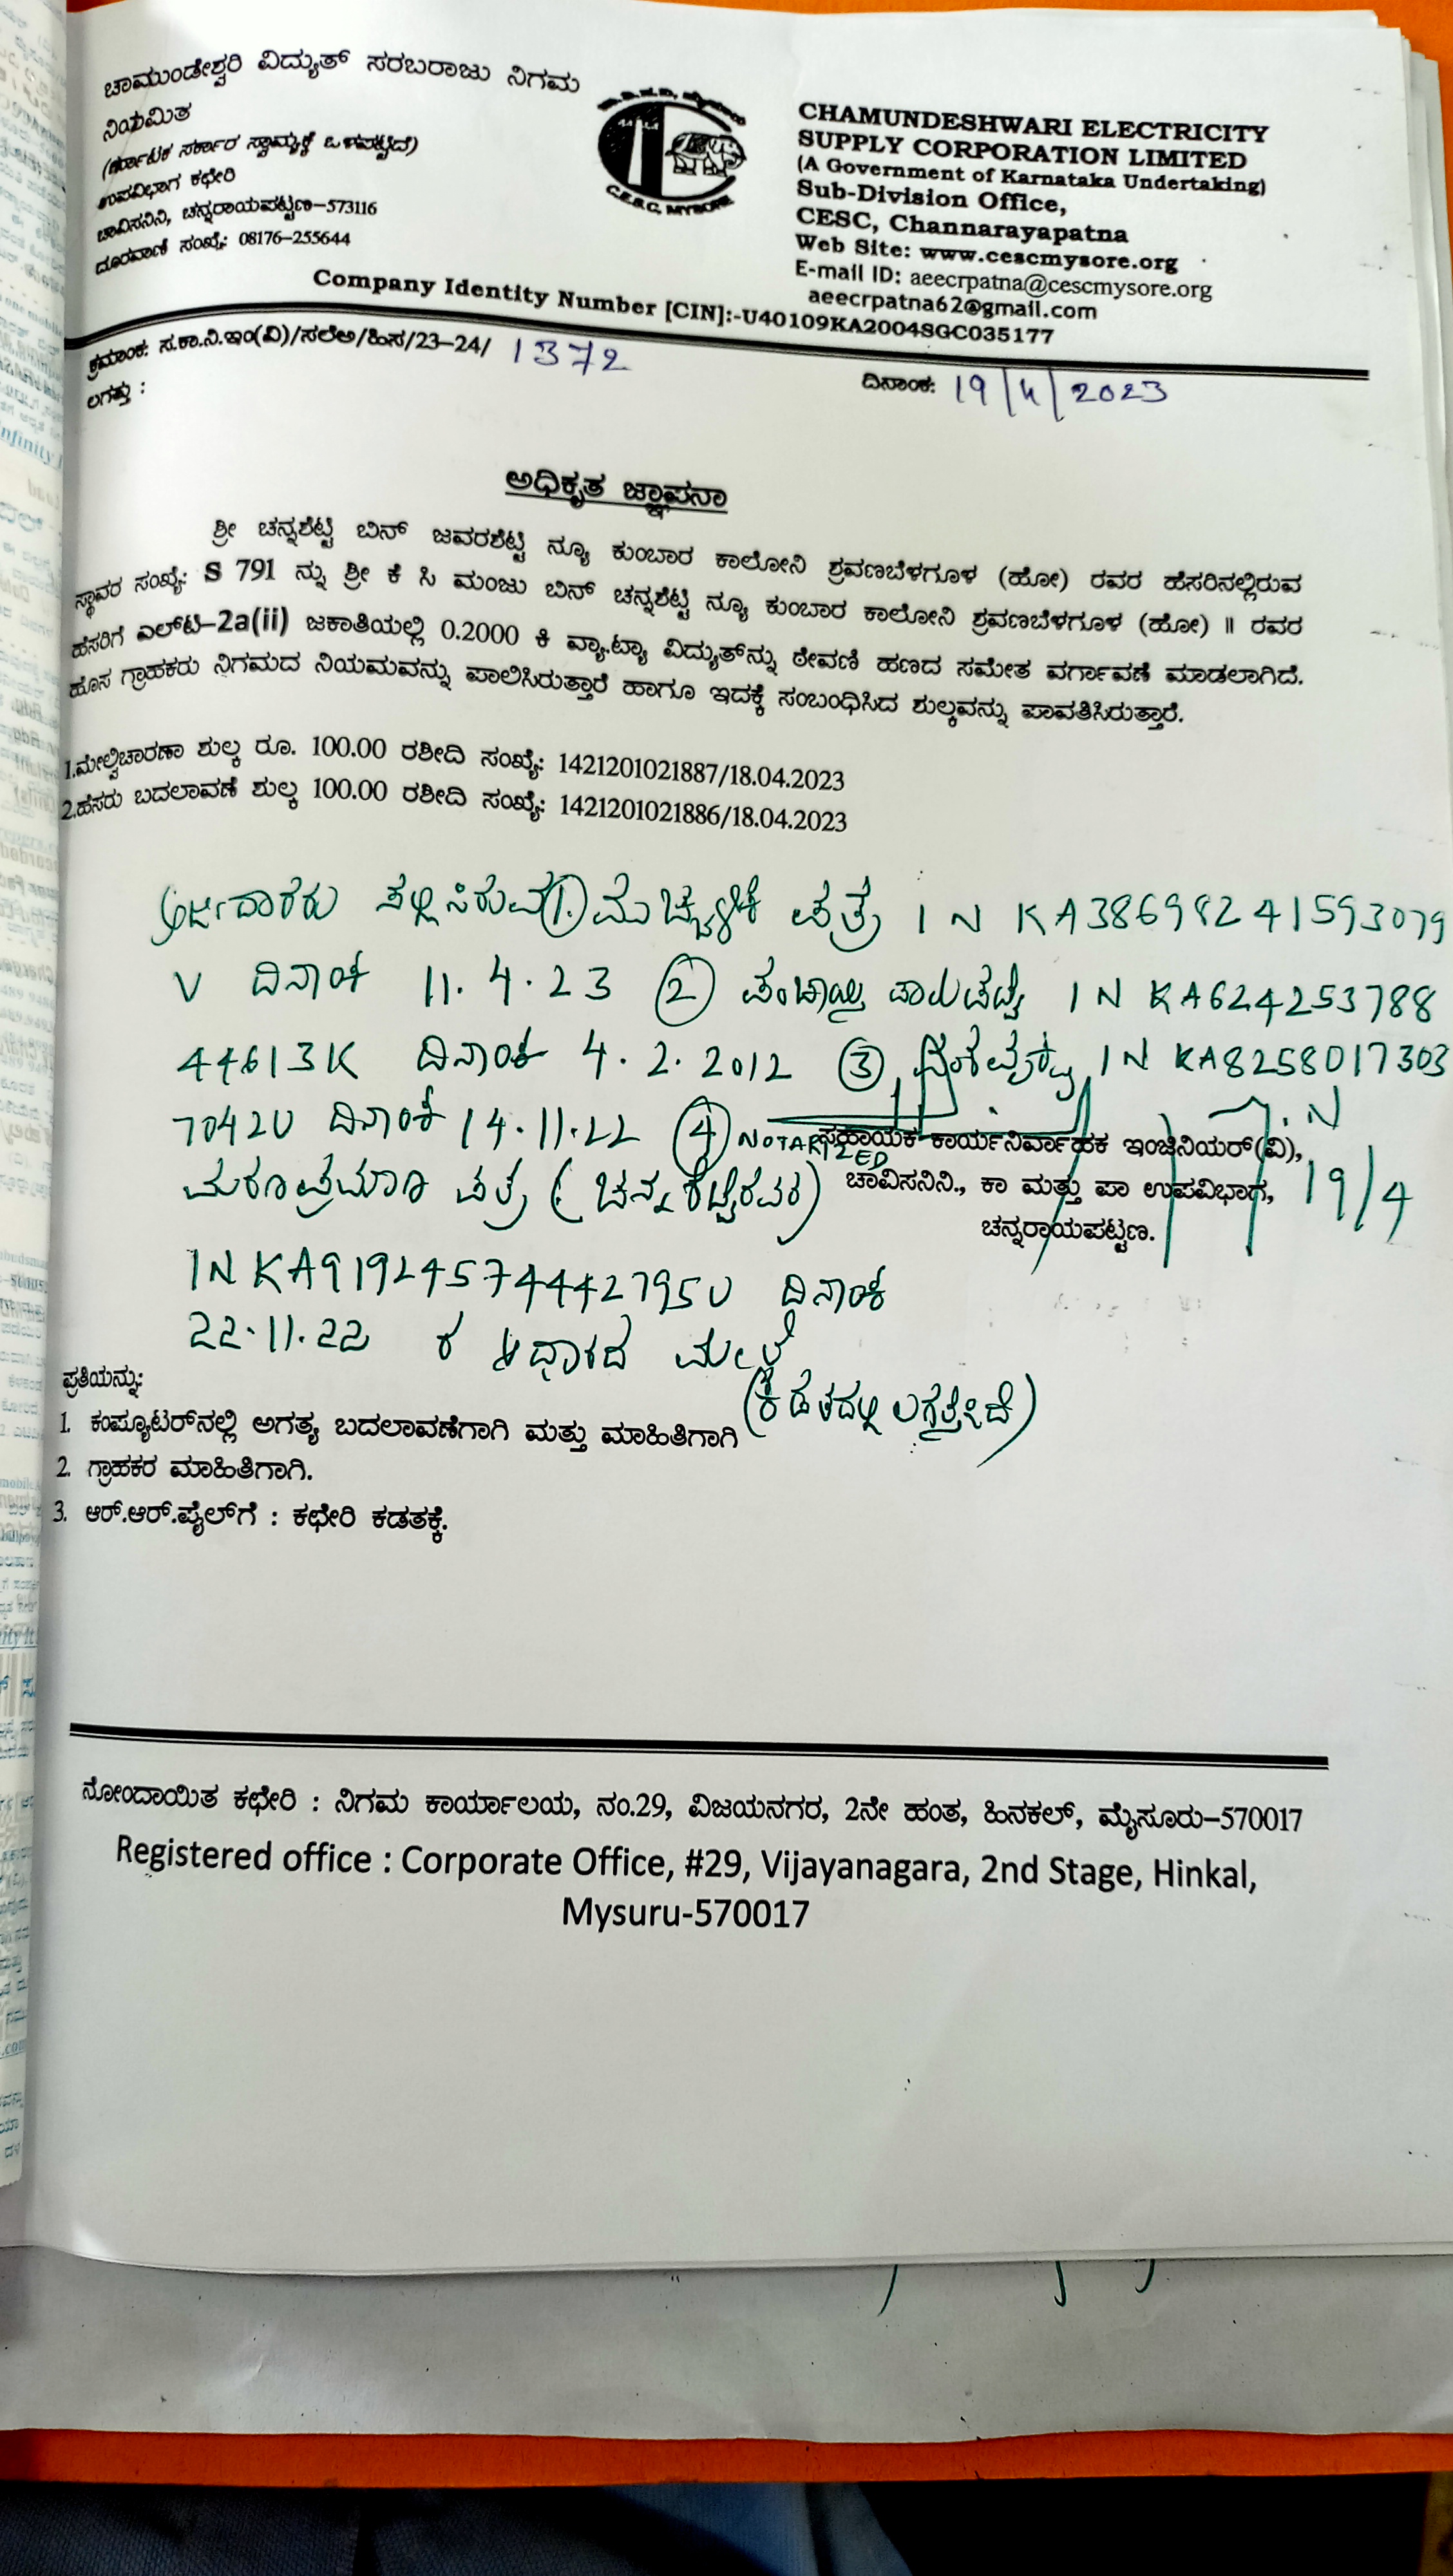 ಚಾಮುಂಡೇಶ್ವರಿ ವಿದ್ಯುತ್ ಸರಬರಾಜು ನಿಗಮ
ನಿಯಮಿತ
(ಕರ್ನಾಟಕ ಸರ್ಕಾರ ಸ್ವಾಮ್ಯಕ್ಕೆ ಒಳಪಟ್ಟಿದೆ)
ಉಪವಿಭಾಗ ಕಛೇರಿ
ಚಾವಿಸನಿನಿ, ಚನ್ನರಾಯಪಟ್ಟಣ–573116
ದೂರವಾಣಿ ಸಂಖ್ಯೆ: 08176–255644
C.E.S.C. MYSORE
CHAMUNDESHWARI ELECTRICITY
SUPPLY CORPORATION LIMITED
(A Government of Karnataka Undertaking)
Sub-Division Office,
CESC, Channarayapatna
Web Site: www.cescmysore.org
E-mail ID: aeecrpatna@cescmysore.org
aeecrpatna62@gmail.com
Company Identity Number [CIN]:-U40109KA2004SGC035177
ಕ್ರಮಾಂಕ: ಸ.ಕಾ.ನಿ.ಇಂ(ವಿ)/ಸಲೆಅ/ಹಿಸ/23–24/ 1372
ದಿನಾಂಕ: 19/4/2023
ಲಗತ್ತು :
ಅಧಿಕೃತ ಜ್ಞಾಪನಾ
ಶ್ರೀ ಚನ್ನಶೆಟ್ಟಿ ಬಿನ್ ಜವರಶೆಟ್ಟಿ ನ್ಯೂ ಕುಂಬಾರ ಕಾಲೋನಿ ಶ್ರವಣಬೆಳಗೂಳ (ಹೋ) ರವರ ಹೆಸರಿನಲ್ಲಿರುವ
ಸ್ಥಾವರ ಸಂಖ್ಯೆ: S 791 ನ್ನು ಶ್ರೀ ಕೆ ಸಿ ಮಂಜು ಬಿನ್ ಚನ್ನಶೆಟ್ಟಿ ನ್ಯೂ ಕುಂಬಾರ ಕಾಲೋನಿ ಶ್ರವಣಬೆಳಗೂಳ (ಹೋ) ॥ ರವರ
ಹೆಸರಿಗೆ ಎಲ್‌ಟಿ–2a(ii) ಜಕಾತಿಯಲ್ಲಿ 0.2000 ಕಿ ವ್ಯಾಟ್ಯಾ ವಿದ್ಯುತ್‌ನ್ನು ಠೇವಣಿ ಹಣದ ಸಮೇತ ವರ್ಗಾವಣೆ ಮಾಡಲಾಗಿದೆ.
ಹೊಸ ಗ್ರಾಹಕರು ನಿಗಮದ ನಿಯಮವನ್ನು ಪಾಲಿಸಿರುತ್ತಾರೆ ಹಾಗೂ ಇದಕ್ಕೆ ಸಂಬಂಧಿಸಿದ ಶುಲ್ಕವನ್ನು ಪಾವತಿಸಿರುತ್ತಾರೆ.
1.ಮೇಲ್ವಿಚಾರಣಾ ಶುಲ್ಕ ರೂ. 100.00 ರಶೀದಿ ಸಂಖ್ಯೆ: 1421201021887/18.04.2023
2.ಹೆಸರು ಬದಲಾವಣೆ ಶುಲ್ಕ 100.00 ರಶೀದಿ ಸಂಖ್ಯೆ: 1421201021886/18.04.2023
ಅರ್ಜಿದಾರರು ಸಲ್ಲಿಸಿರುವ 1. ಮುಚ್ಚಳಿಕೆ ಪತ್ರ IN KA38698241593079
V ದಿನಾಂಕ 11.4.23 2 ಪಂಚಾಯ್ತಿ IN KA624253788
44613K ದಿನಾಂಕ 4.2.2012 3 IN KA8258017303
7042U ದಿನಾಂಕ 14.11.22 4 NOTARIZED
ಸಹಾಯಕ ಕಾರ್ಯನಿರ್ವಾಹಕ ಇಂಜಿನಿಯರ್(ವಿ),
ಪ್ರಮಾಣ ಪತ್ರ (ಚನ್ನಶೆಟ್ಟಿರವರ)
ಚಾವಿಸನಿನಿ., ಕಾ ಮತ್ತು ಪಾ ಉಪವಿಭಾಗ, 19/4
ಚನ್ನರಾಯಪಟ್ಟಣ.
INKA91924574442795U ದಿನಾಂಕ
22.11.22 ರ ಆಧಾರದ ಮೇಲೆ
(ಕಡತದಲ್ಲಿ ಲಗ್ಗತ್ತೀಸಿದೆ)
ಪ್ರತಿಯನ್ನು:
1. ಕಂಪ್ಯೂಟರ್‌ನಲ್ಲಿ ಅಗತ್ಯ ಬದಲಾವಣೆಗಾಗಿ ಮತ್ತು ಮಾಹಿತಿಗಾಗಿ
2. ಗ್ರಾಹಕರ ಮಾಹಿತಿಗಾಗಿ.
3. ಆರ್.ಆರ್.ಪೈಲ್‌ಗೆ : ಕಛೇರಿ ಕಡತಕ್ಕೆ.
ನೋಂದಾಯಿತ ಕಛೇರಿ : ನಿಗಮ ಕಾರ್ಯಾಲಯ, ನಂ.29, ವಿಜಯನಗರ, 2ನೇ ಹಂತ, ಹಿನಕಲ್, ಮೈಸೂರು–570017
Registered office : Corporate Office, #29, Vijayanagara, 2nd Stage, Hinkal,
Mysuru-570017